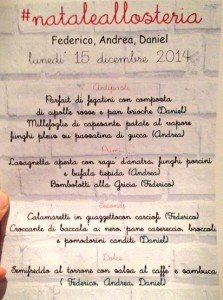 #nataleallosteria
Federico, Andrea, Daniel
lunedi' 15 dicembre 2014
Antipasti
Parfait di fegatini con composta
di cipolle rosse e pan brioche (Daniel)
Millefoglie di capesante, patate al vapore
funghi pleio su passatina di zucca (Andrea)
Primi
Lasagnetta aperta con ragu' d'anatra, funghi porcini
e bufala tiepida (Andrea)
Bombolotti alla Gricia (Federico)
Secondi
Calamaretti in guazzetto con carciofi (Federico)
Croccante di baccala al nero, pane casereccio, broccoli
e pomodorini canditi (Daniel)
Dolce
Semifreddo al torrone con salsa al caffe' e sambuca
( Federico, Andrea, Daniel)